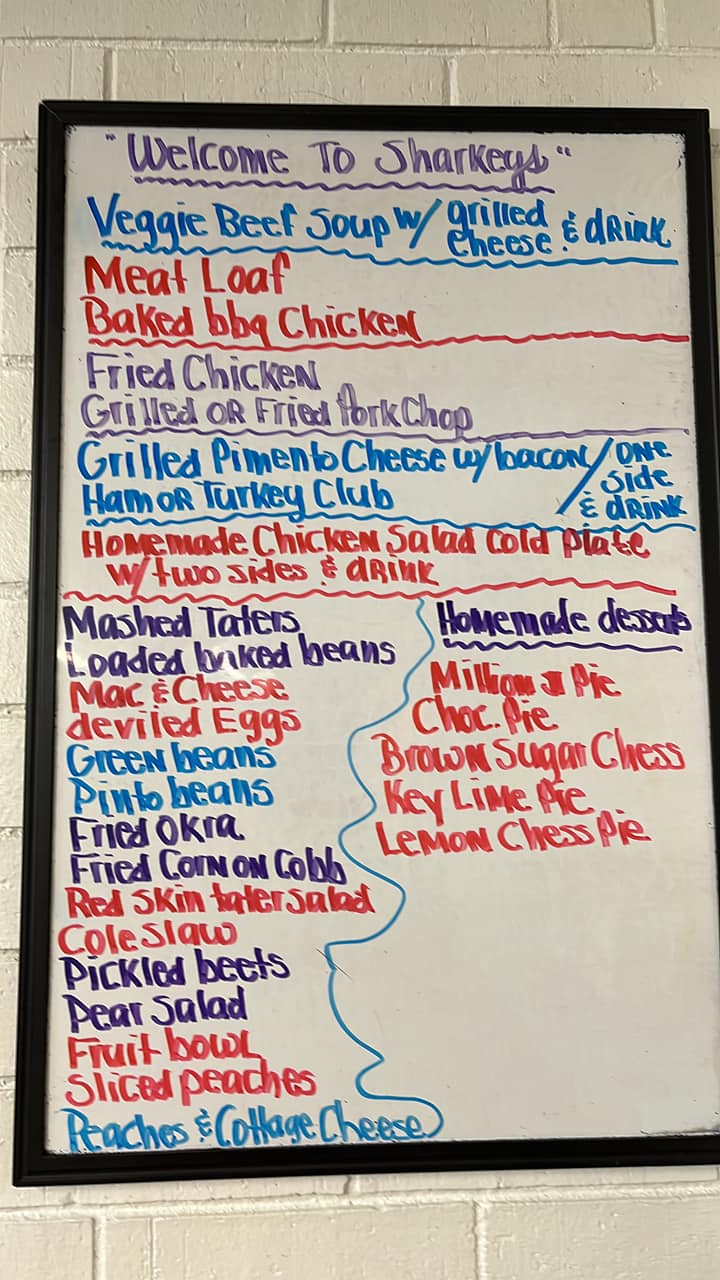 "Welcome To Sharkeys"
Veggie Beef Soup w/ grilled cheese & drink
Meat Loaf
Baked bbq Chicken
Fried Chicken
Grilled or Fried Pork Chop
Grilled Pimento Cheese w/ bacon / one side & drink
Ham or Turkey Club
Homemade Chicken Salad cold plate
w/ two sides & drink
Mashed Taters
Loaded baked beans
Mac & Cheese
deviled Eggs
Green beans
Pinto beans
Fried Okra
Fried Corn on Cobb
Red Skin tater salad
Cole Slaw
Pickled beets
Pear Salad
Fruit bowl
Sliced peaches
Peaches & Cottage Cheese
Homemade desserts
Million $ Pie
Choc. Pie
Brown Sugar Chess
Key Lime Pie
Lemon Chess Pie